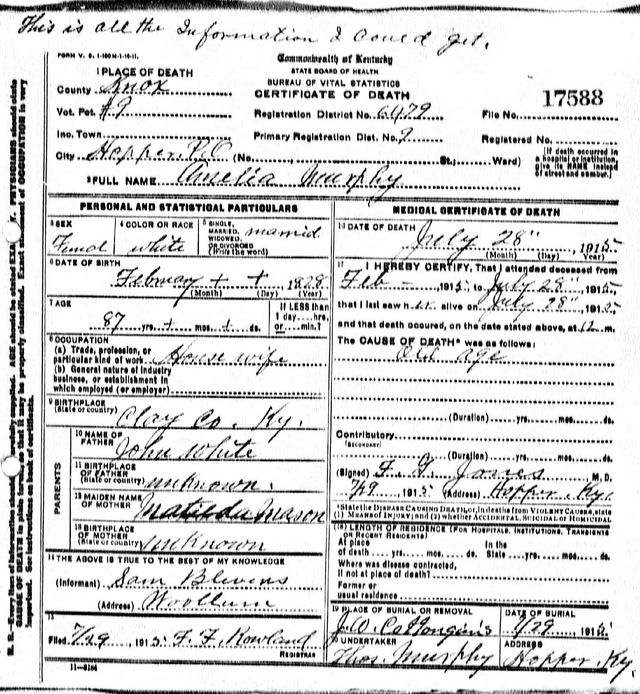 This is all the Information I could get.
FORM V. S. 1-100M-1-10-11.
Commonwealth of Kentucky
STATE BOARD OF HEALTH
BUREAU OF VITAL STATISTICS
CERTIFICATE OF DEATH
1 PLACE OF DEATH
County Knox
Vot. Pct. #9
Registration District No. 6479
File No. 17588
Inc. Town
Primary Registration Dist. 9
Registered No.
City Hopper, P.O (No. St.; Ward)
(If death occurred in a hospital or institution, give its NAME instead of street and number.)
2 FULL NAME Amelia Murphy
PERSONAL AND STATISTICAL PARTICULARS
3 SEX Femal
4 COLOR OR RACE white
5 SINGLE, MARRIED, WIDOWED, OR DIVORCED (Write the word) married
6 DATE OF BIRTH
February + + 1828
(Month) (Day) (Year)
7 AGE
87 yrs. + mos. + ds.
If LESS than 1 day....hrs. or....min.?
8 OCCUPATION
(a) Trade, profession, or particular kind of work House wife
(b) General nature of industry business, or establishment in which employed (or employer)
9 BIRTHPLACE
(State or country) Clay Co. Ky.
PARENTS
10 NAME OF FATHER John White
11 BIRTHPLACE OF FATHER (State or country) unknown.
12 MAIDEN NAME OF MOTHER Matilda Mason
13 BIRTHPLACE OF MOTHER (State or country) unknown
14 THE ABOVE IS TRUE TO THE BEST OF MY KNOWLEDGE
(Informant) Sam Blevens
(Address) Woollum
15
Filed 7/29 1915 F. F. Rowland
REGISTRAR
11-6184
MEDICAL CERTIFICATE OF DEATH
16 DATE OF DEATH
July 28" 1915
(Month) (Day) (Year)
17 I HEREBY CERTIFY, That I attended deceased from
Feb - 1915 to July 28" 1915
that I last saw her alive on July 28" 1915
and that death occured, on the date stated above, at 12 m.
The CAUSE OF DEATH* was as follows:
Old age
(Duration) yrs. mos. ds.
Contributory
(SECONDARY)
(Duration) yrs. mos. ds.
(Signed) Jones M. D.
7/29 1915 (Address) Hopper Ky.
*State the DISEASE CAUSING DEATH, or, in deaths from VIOLENT CAUSES, state (1) MEANS OF INJURY; and (2) whether ACCIDENTAL, SUICIDAL OR HOMICIDAL
(18) LENGTH OF RESIDENCE (FOR HOSPITALS, INSTITUTIONS, TRANSIENTS OR RECENT RESIDENTS)
At place of death yrs. mos. ds. In the State yrs. mos. ds.
Where was disease contracted, if not at place of death?
Former or usual residence
19 PLACE OF BURIAL OR REMOVAL
J. W.
DATE OF BURIAL
7/29 1915
20 UNDERTAKER
Thos. Murphy
ADDRESS
Hopper, Ky.